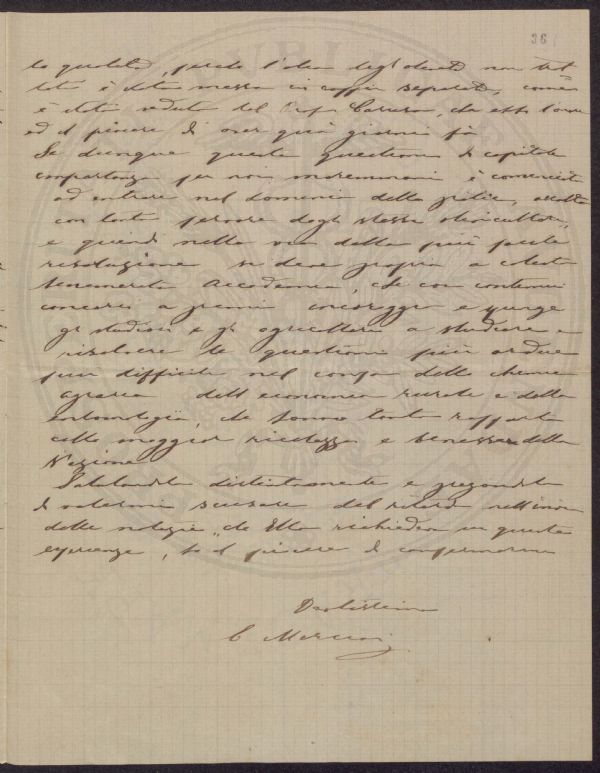 36
la qualità, perché l'olio degli oliveti non trat
tati è stato messo in coppi separati, come
è stato veduto dal Prof. Caruso, che ebbi l'onore
ed il piacere di aver quì giorni fa
Se dunque questa questione di capitale
importanza per noi maremmani è cominciata
ad entrare nel dominio della pratica, accolta
con tanto fervore dagli stessi olivicultori,
e quindi nella via della più facile
risoluzione si deve proprio a cotesta
benemerita Accademia, che con continui
concorsi a premi incoraggia e spinge
gli studiosi e gli agricoltori a studiare e
risolvere le questioni più ardue
più difficili nel campo della chimica
agraria dell'economia rurale e della
entomologia, che hanno tanti rapporti
colla maggior ricchezza e benessere della
Nazione
Salutandola distintamente e pregandola
di volermi scusare del ritardo nell'invio
delle notizie che Ella richiedeva su queste
esperienze, ho il piacere di confermarmi
Devotissimo